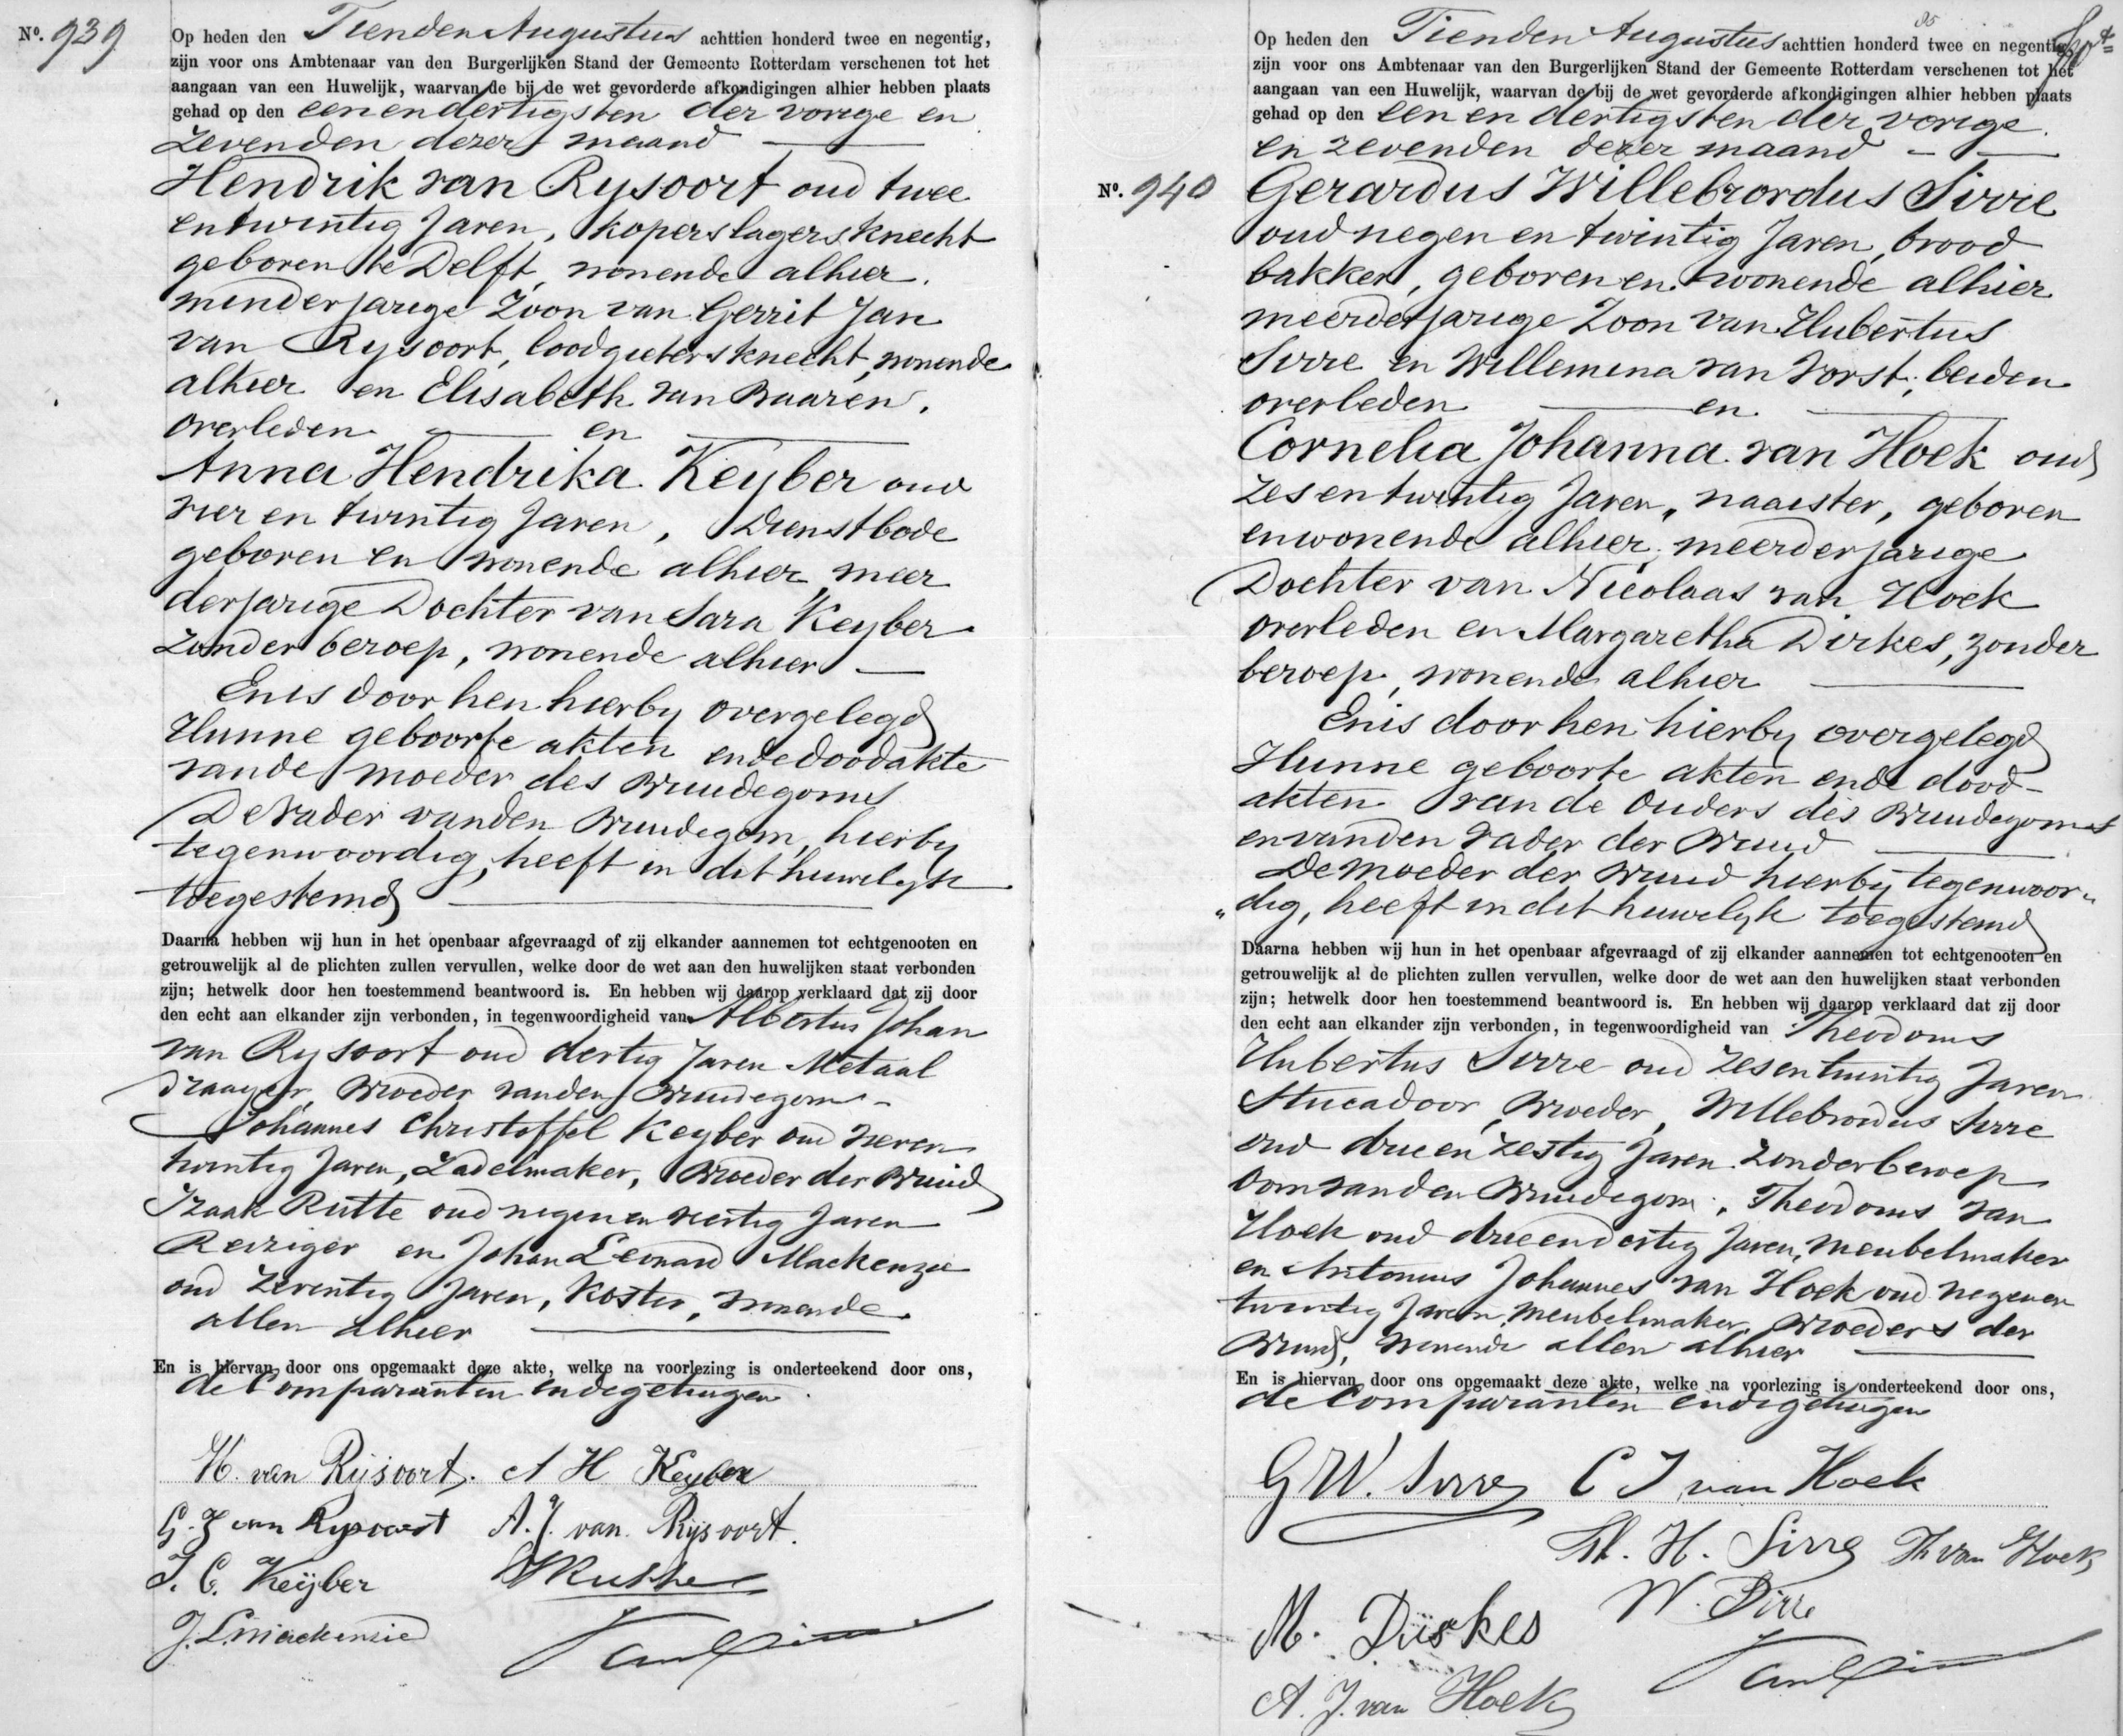 No. 939
Op heden den Tienden Augustus achttien honderd twee en negentig,
zijn voor ons Ambtenaar van den Burgerlijken Stand der Gemeente Rotterdam verschenen tot het
aangaan van een Huwelijk, waarvan de bij de wet gevorderde afkondigingen alhier hebben plaats
gehad op den eenendertigsten der vorige en
zevenden dezer maand
Hendrik van Rysoort oud twee
entwintig Jaren, koperslagersknecht
geboren te Delft, wonende alhier.
minderjarige Zoon van Gerrit Jan
van Rysoort, loodgietersknecht, wonende
alhier en Elisabeth van Baaren,
overleden en
Anna Hendrika Keyber oud
vier en twintig Jaren, Dienstbode
geboren en wonende alhier, meer
derjarige Dochter van Sara Keyber
zonder beroep, wonende alhier
En is door hen hierby overgelegd
Hunne geboorte akten en de doodakte
van de moeder des Bruidegoms
De Vader van den Bruidegom, hierby
tegenwoordig, heeft in dit huwelyk
toegestemd
Daarna hebben wij hun in het openbaar afgevraagd of zij elkander aannemen tot echtgenooten en
getrouwelijk al de plichten zullen vervullen, welke door de wet aan den huwelijken staat verbonden
zijn; hetwelk door hen toestemmend beantwoord is. En hebben wij daarop verklaard dat zij door
den echt aan elkander zijn verbonden, in tegenwoordigheid van Albertus Johan
van Rysoort oud dertig Jaren Metaal
draayer, Broeder van den Bruidegom
Johannes Christoffel Keyber oud zeven
twintig Jaren, Zadelmaker, Broeder der Bruid
Izaak Rutte oud negen en veertig Jaren
Reiziger en Johan Leonard Mackenzie
oud zeventig Jaren, Koster, wonende
allen alhier
En is hiervan door ons opgemaakt deze akte, welke na voorlezing is onderteekend door ons,
de Comparanten en de getuigen.
H. van Rijsoort. A H Keyber
G. J van Rysoort A. J. van Rijsoort.
J. C. Keijber
J. L. Mackenzie
Op heden den Tienden Augustus achttien honderd twee en negentig,
zijn voor ons Ambtenaar van den Burgerlijken Stand der Gemeente Rotterdam verschenen tot het
aangaan van een Huwelijk, waarvan de bij de wet gevorderde afkondigingen alhier hebben plaats
gehad op den een en dertigsten der vorige
en zevenden dezer maand
No. 940 Gerardus Willebrordus Sirre
oud negen en twintig Jaren, brood
bakker, geboren en wonende alhier
meerderjarige Zoon van Hubertus
Sirre en Willemina van Vorst, beiden
overleden en
Cornelia Johanna van Hoek oud
zesentwintig Jaren, naaister, geboren
en wonende alhier, meerderjarige
Dochter van Nicolaas van Hoek
overleden en Margaretha Dirkes, zonder
beroep, wonende alhier
En is door hen hierby overgelegd
Hunne geboorte akten en de dood-
akten van de Ouders des Bruidegoms
en van den vader der Bruid
De moeder der Bruid hierby tegenwoor„
„dig, heeft in dit huwelyk toegestemd
Daarna hebben wij hun in het openbaar afgevraagd of zij elkander aannemen tot echtgenooten en
getrouwelijk al de plichten zullen vervullen, welke door de wet aan den huwelijken staat verbonden
zijn; hetwelk door hen toestemmend beantwoord is. En hebben wij daarop verklaard dat zij door
den echt aan elkander zijn verbonden, in tegenwoordigheid van Theodorus
Hubertus Sirre oud zesentwintig Jaren
Stucadoor, Broeder, Willebrordus Sirre
oud drie en zestig Jaren zonder beroep
Oom van den Bruidegom, Theodorus van
Hoek oud drieendertig Jaren, meubelmaker
en Antonius Johannes van Hoek oud negenen
twintig Jaren, meubelmaker, Broeders der
Bruid, wonende allen alhier
En is hiervan door ons opgemaakt deze akte, welke na voorlezing is onderteekend door ons,
de Comparanten en de getuigen
G W. Sirre C J van Hoek
Th. H. Sirre Th van Hoek
M. Dirkes W. Sirre
A. J. van Hoek